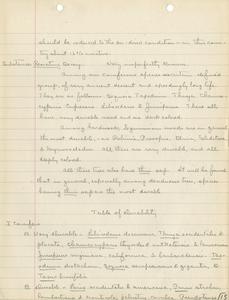 should be reduced to the air-dried condition - in this coun-
try about 12% moisture.
Substances Resisting Decay. Very imperfectly known.
Among our coniferous species certain defined
group, of very ancient descent and exceedingly long life.
They are as follows: Sequoia Taxodium Thuya Chamae-
cyparis Cupressus Libocedrus & Juniperus. These all
have very durable wood and are dark colored.
Among hardwoods, leguminous woods are in general
the most durable, as Robinia, Prosopis, Olneya,
& Gymnocladus. All these are very durable, and all
deeply colored.
All these trees also have thin sap. It will be found
that in general, especially among deciduous trees, species
having thin sapwood the most durable.
Table of Durability
I Conifers
A. Very durable = Libocedrus decurrens, Thuya occidentalis &
plicata, Chamaecyparis thyoides & nutkatensis & lawsoniana
Juniperus virginiana, californica & barbadensis. Tax-
odium distichum, Sequoia sempervirens & gigantea, &
Taxus brevifolia
B. Durable = Larix occidentalis & americana, Pinus strobus,